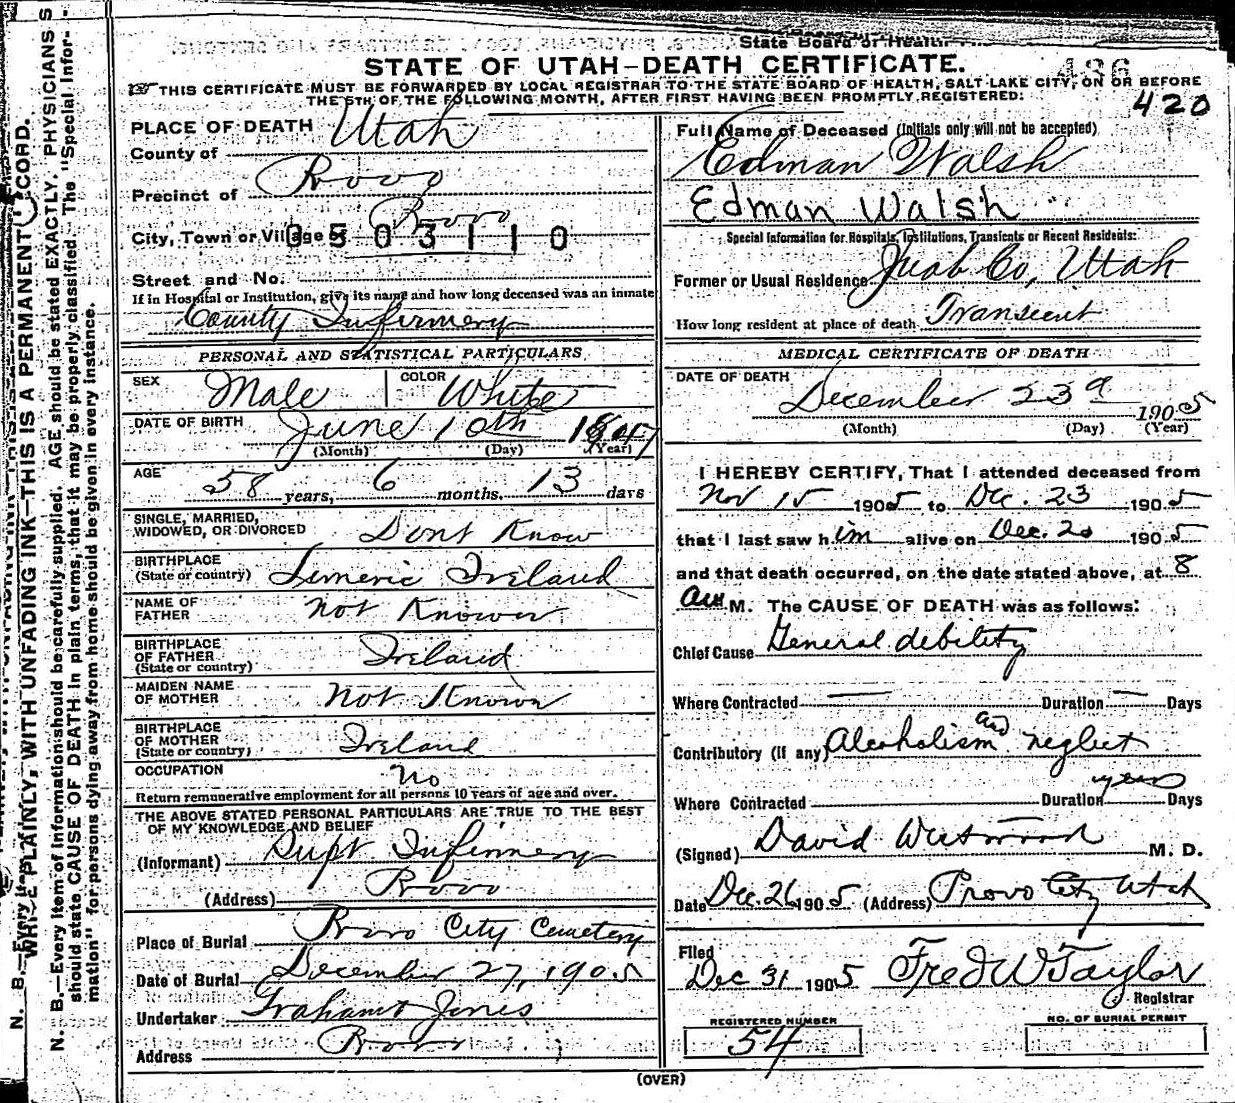 State Board of Health
STATE OF UTAH—DEATH CERTIFICATE.
426
THIS CERTIFICATE MUST BE FORWARDED BY LOCAL REGISTRAR TO THE STATE BOARD OF HEALTH, SALT LAKE CITY, ON OR BEFORE
THE 5TH OF THE FOLLOWING MONTH, AFTER FIRST HAVING BEEN PROMPTLY REGISTERED:
420
PLACE OF DEATH
County of Utah
Precinct of Provo
City, Town or Village of Provo
0503110
Street and No.
If in Hospital or Institution, give its name and how long deceased was an inmate
County Infirmery
PERSONAL AND STATISTICAL PARTICULARS
SEX Male COLOR White
DATE OF BIRTH June 10th 1847
(Month) (Day) (Year)
AGE 58 years, 6 months, 13 days
SINGLE, MARRIED,
WIDOWED, OR DIVORCED Dont Know
BIRTHPLACE
(State or country) Limeric Ireland
NAME OF
FATHER Not Known
BIRTHPLACE
OF FATHER
(State or country) Ireland
MAIDEN NAME
OF MOTHER Not Known
BIRTHPLACE
OF MOTHER
(State or country) Ireland
OCCUPATION No
Return remunerative employment for all persons 10 years of age and over.
THE ABOVE STATED PERSONAL PARTICULARS ARE TRUE TO THE BEST
OF MY KNOWLEDGE AND BELIEF
(Informant) Supt Infirmery
(Address) Provo
Place of Burial Provo City Cemetery
Date of Burial December 27, 1905
Undertaker Graham & Jones
Address Provo
Full Name of Deceased (Initials only will not be accepted)
Edman Walsh
Edman Walsh
Special Information for Hospitals, Institutions, Transients or Recent Residents:
Former or Usual Residence Juab Co, Utah
How long resident at place of death Transcent
MEDICAL CERTIFICATE OF DEATH
DATE OF DEATH
December 23d 1905
(Month) (Day) (Year)
I HEREBY CERTIFY, That I attended deceased from
Nov 15 1905 to Dec. 23 1905
that I last saw him alive on Dec. 20 1905
and that death occurred, on the date stated above, at 8
am M. The CAUSE OF DEATH was as follows:
Chief Cause General debility
Where Contracted Duration Days
Contributory (if any) Alcoholism and neglect
Where Contracted Duration years Days
(Signed) David Westwood M. D.
Date Dec. 26 1905 (Address) Provo City Utah
Filed
Dec 31 1905 Fred W Taylor
Registrar
REGISTERED NUMBER
54
NO. OF BURIAL PERMIT
(OVER)
WRITE PLAINLY, WITH UNFADING INK—THIS IS A PERMANENT RECORD.
N. B.—Every item of information should be carefully supplied. AGE should be stated EXACTLY. PHYSICIANS
should state CAUSE OF DEATH in plain terms, that it may be properly classified. The "Special Infor-
mation" for persons dying away from home should be given in every instance.